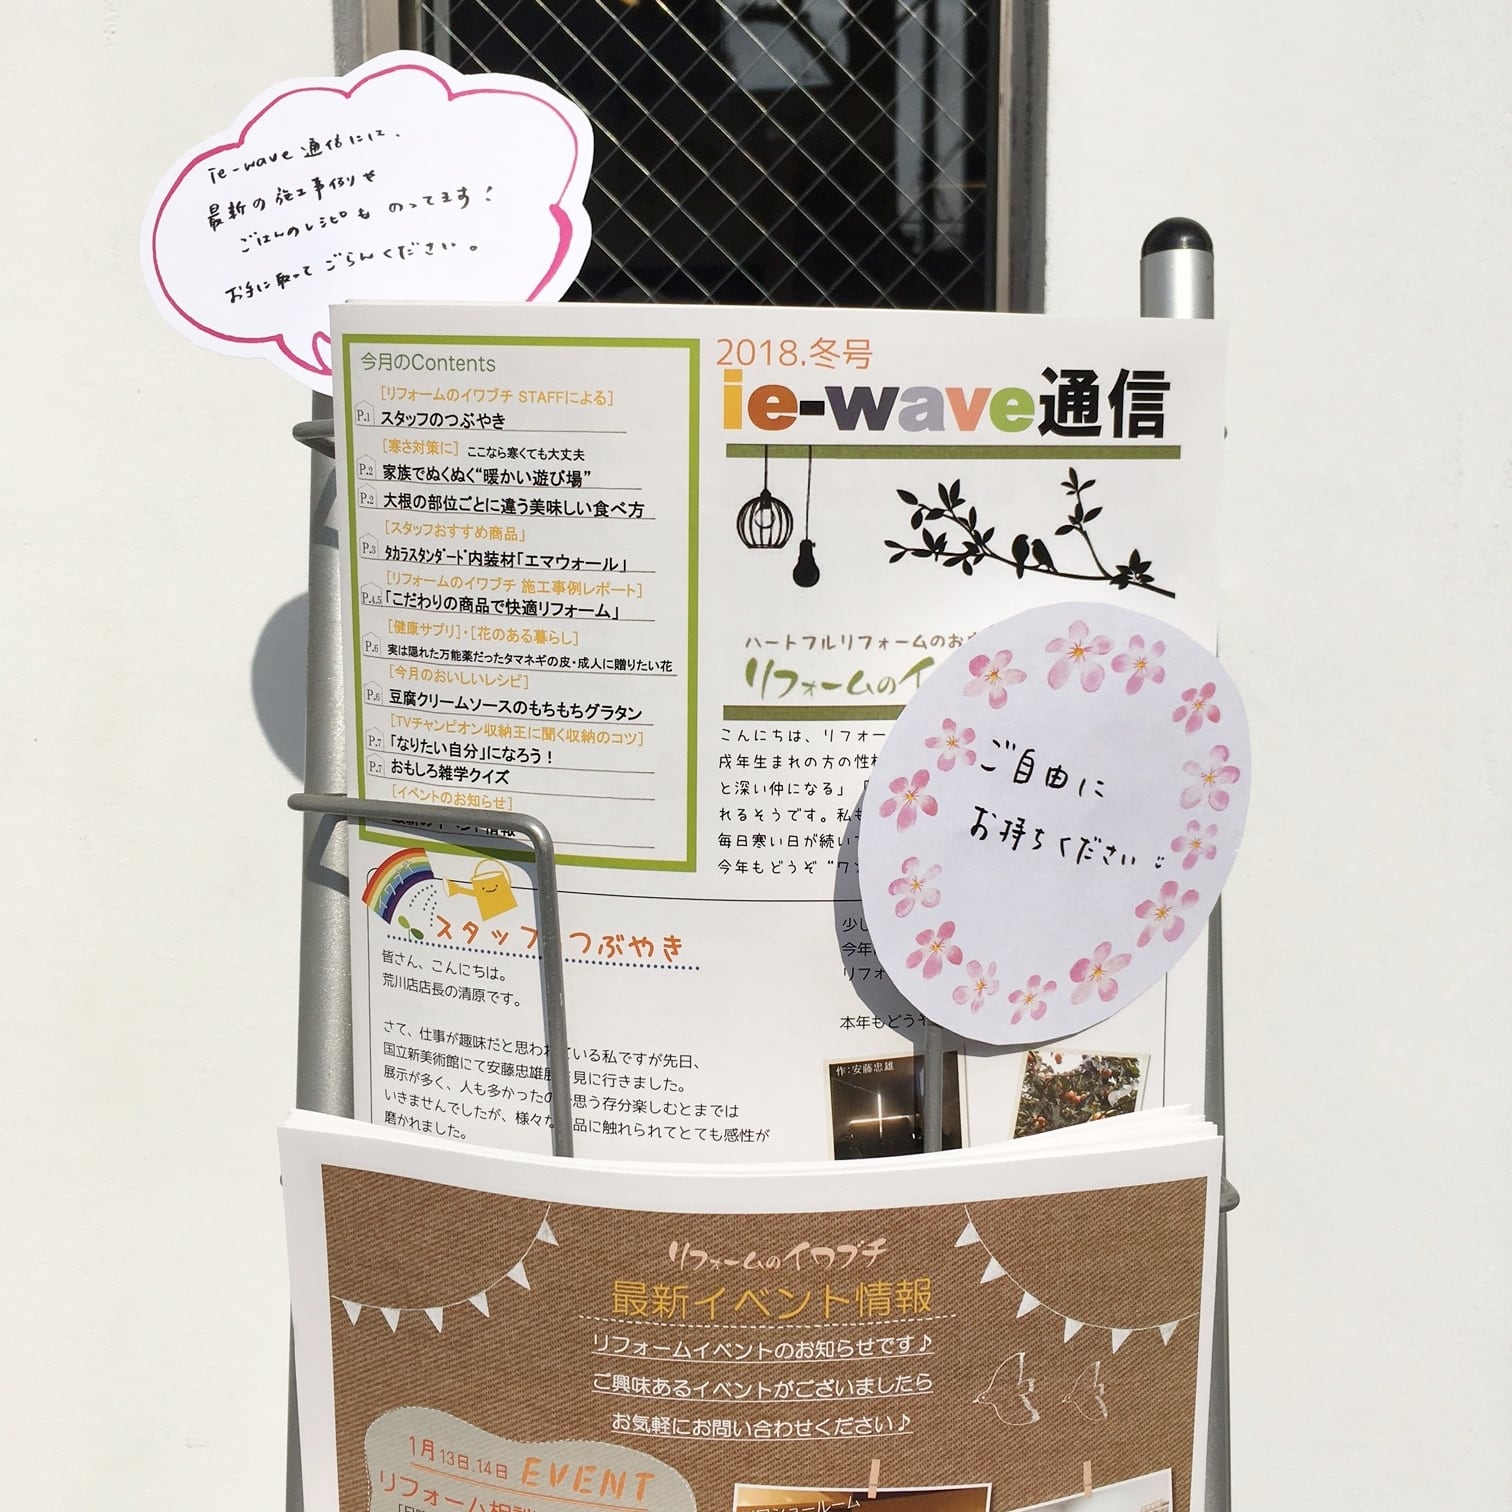 ie-wave 通信には、
最新の施工事例や
ごはんのレシピも のってます！
お手に取って ごらんください。
今月のContents
[リフォームのイワブチ STAFFによる]
P.1 スタッフのつぶやき
[寒さ対策に] ここなら寒くても大丈夫
P.2 家族でぬくぬく“暖かい遊び場”
P.2 大根の部位ごとに違う美味しい食べ方
[スタッフおすすめ商品」
P.3 ﾀｶﾗｽﾀﾝﾀﾞｰﾄﾞ内装材「エマウォール」
[リフォームのイワブチ 施工事例レポート]
P.4.5 「こだわりの商品で快適リフォーム」
[健康サプリ]・[花のある暮らし]
P.6 実は隠れた万能薬だったタマネギの皮・成人に贈りたい花
[今月のおいしいレシピ]
P.6 豆腐クリームソースのもちもちグラタン
[TVチャンピオン収納王に聞く収納のコツ]
P.7 「なりたい自分」になろう！
P.7 おもしろ雑学クイズ
[イベントのお知らせ]
2018.冬号
ie-wave通信
ハートフルリフォームのお
リフォームのイ
こんにちは、リフォー
戌年生まれの方の性
と深い仲になる」
れるそうです。私も
毎日寒い日が続い
今年もどうぞ“ワン
ご自由に
お持ちください
イワブチ
スタッフ つぶやき
皆さん、こんにちは。
荒川店店長の清原です。
さて、仕事が趣味だと思われている私ですが先日、
国立新美術館にて安藤忠雄展 見に行きました。
展示が多く、人も多かったの 思う存分楽しむとまでは
いきませんでしたが、様々な 品に触れられてとても感性が
磨かれました。
少し
今年
リフォ
本年もどうぞ
作:安藤忠雄
リフォームのイワブチ
最新イベント情報
リフォームイベントのお知らせです♪
ご興味あるイベントがございましたら
お気軽にお問い合わせください♪
1月13日.14日 EVENT
リフォーム相談